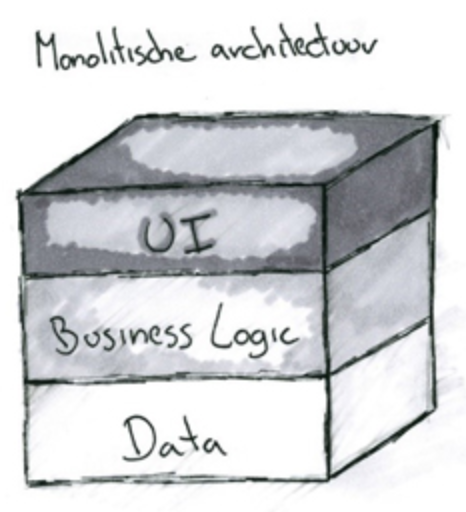 Monolitische architectuur
UI
Business Logic
Data